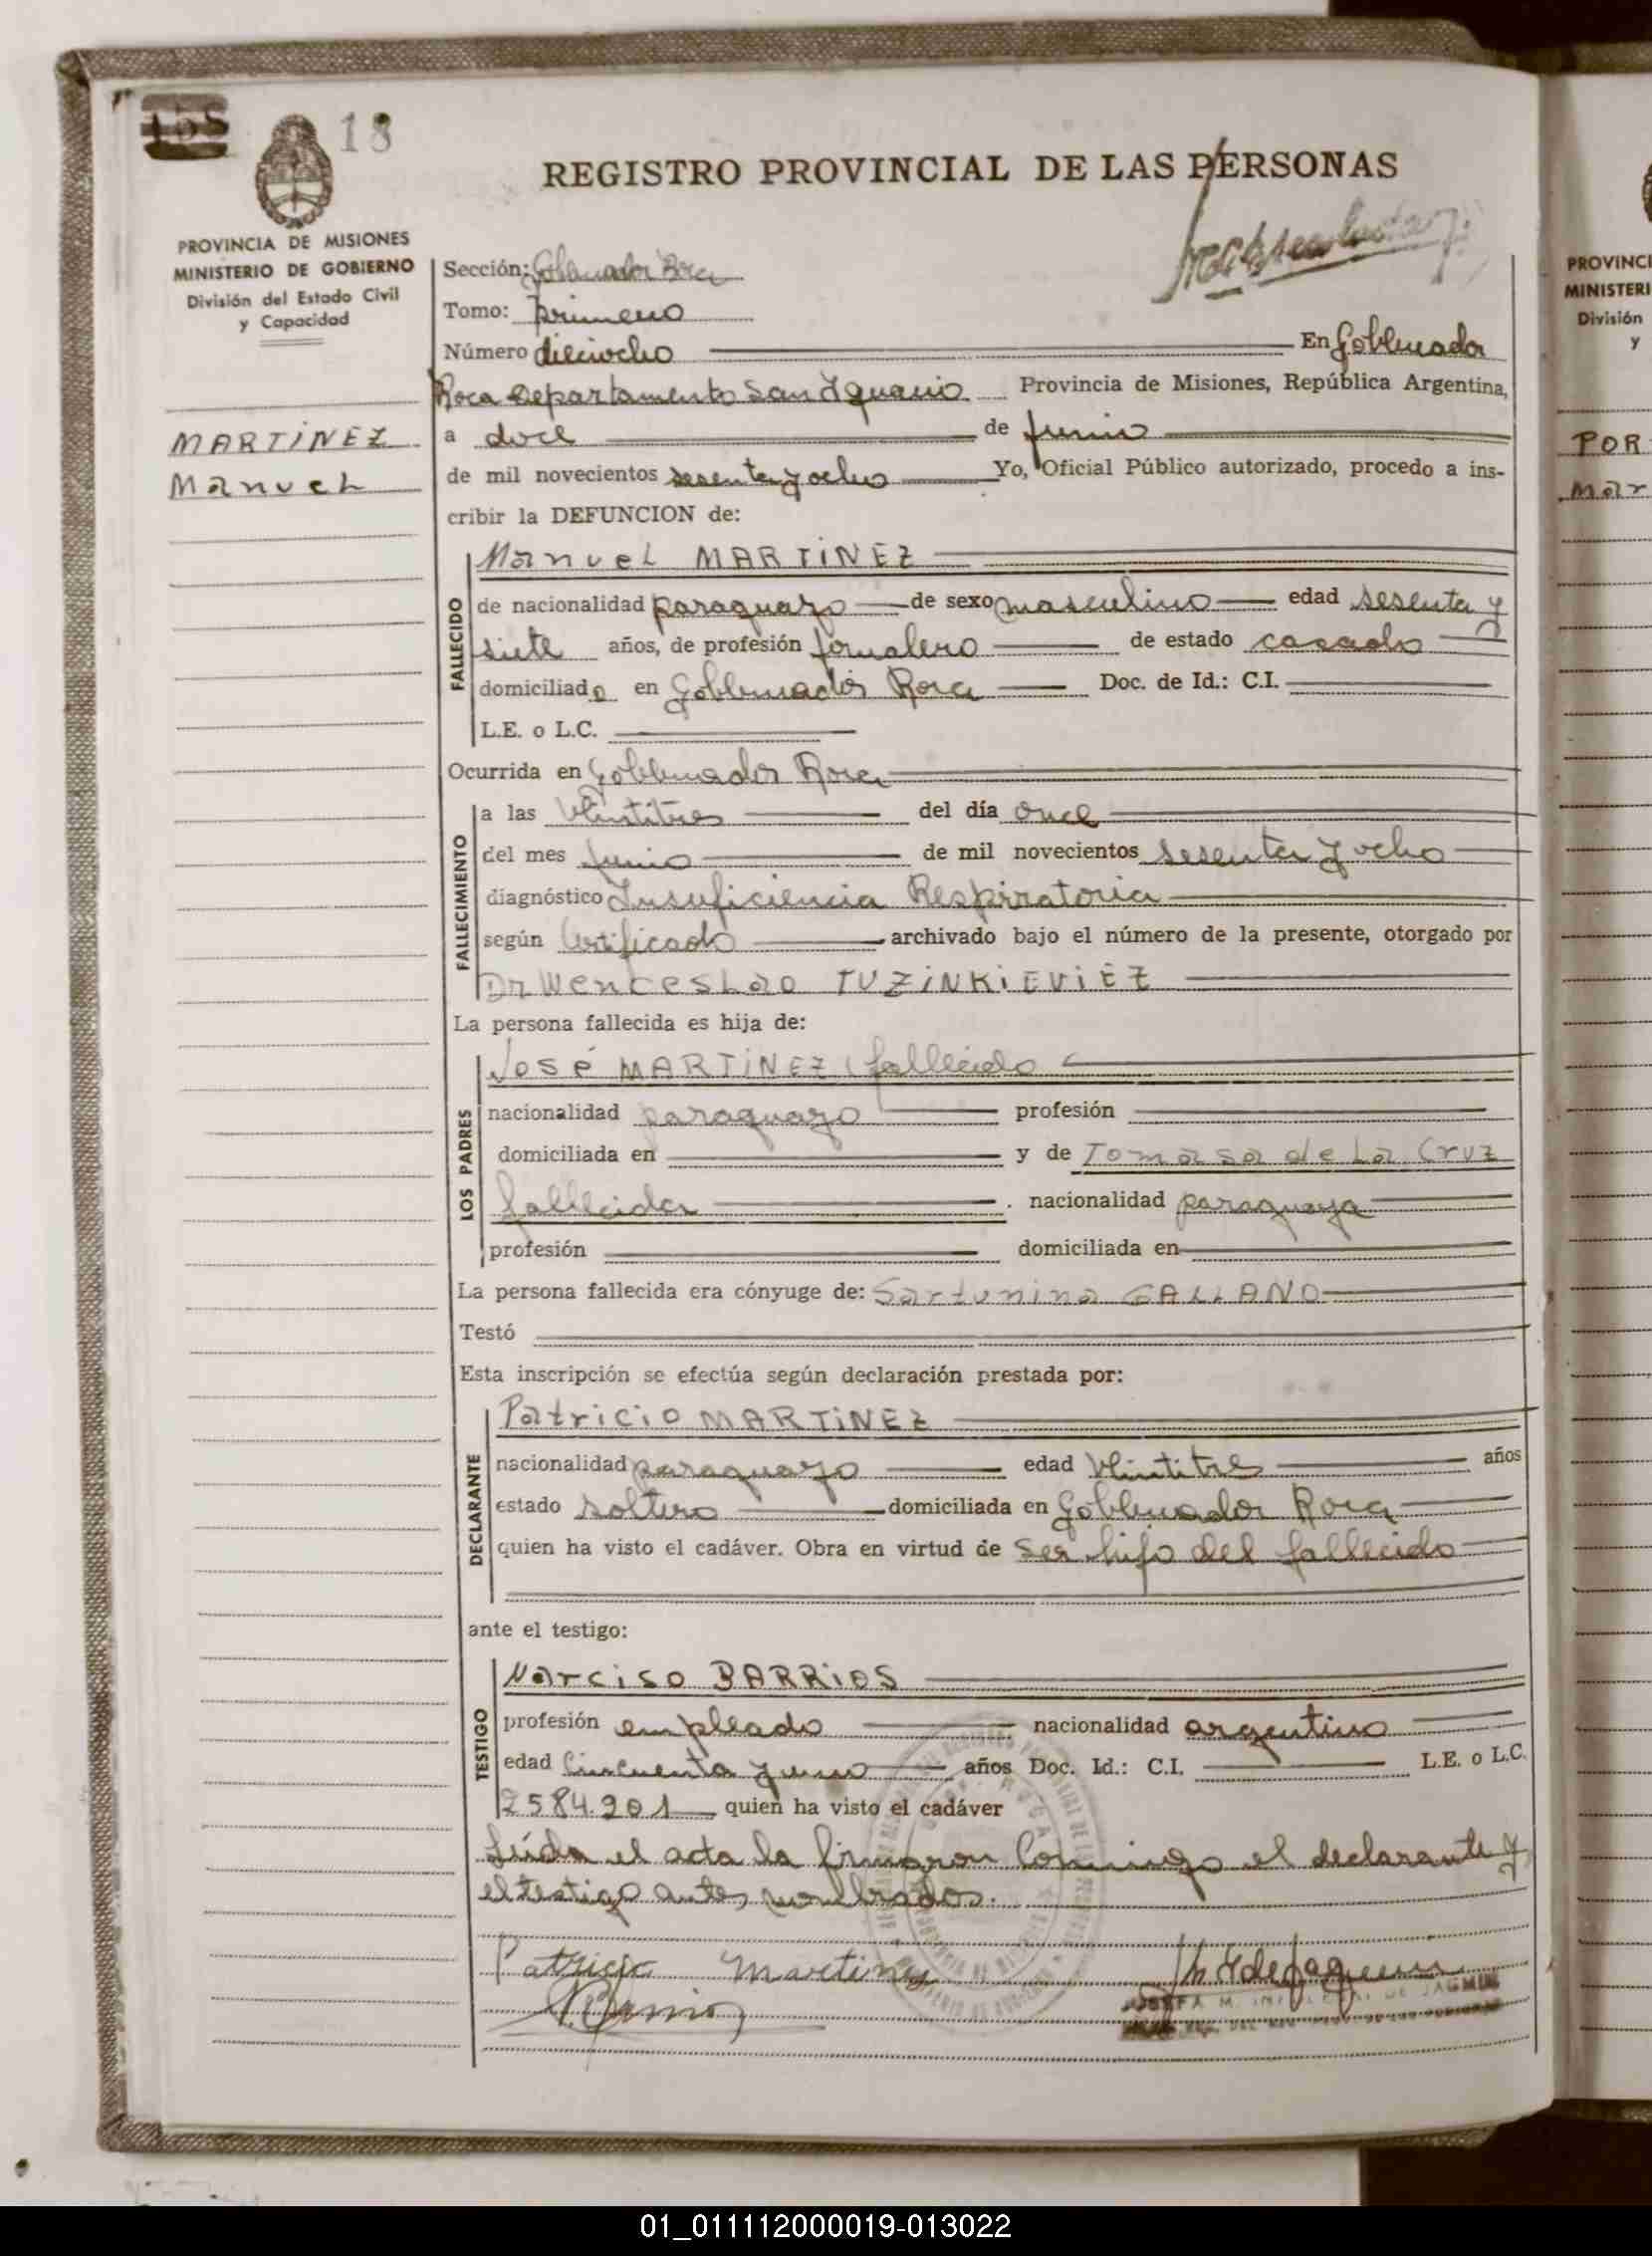 18
REGISTRO PROVINCIAL DE LAS PERSONAS
PROVINCIA DE MISIONES
MINISTERIO DE GOBIERNO
División del Estado Civil
y Capacidad
MARTINEZ
Manuel
Sección: Gobernador Roca
Tomo: primero
Número dieciocho En Gobernador
Roca Departamento San Ignacio Provincia de Misiones, República Argentina,
a doce de junio
de mil novecientos sesenta y ocho Yo, Oficial Público autorizado, procedo a ins-
cribir la DEFUNCION de:
FALLECIDO
Manuel MARTINEZ
de nacionalidad paraguayo de sexo masculino edad sesenta y
siete años, de profesión jornalero de estado casado
domiciliado en Gobernador Roca Doc. de Id.: C.I.
L.E. o L.C.
Ocurrida en Gobernador Roca
FALLECIMIENTO
a las veintitres del día once
del mes junio de mil novecientos sesenta y ocho
diagnóstico Insuficiencia Respiratoria
según Certificado archivado bajo el número de la presente, otorgado por
Dr Wenceslao TUZINKIEVIEZ
La persona fallecida es hija de:
LOS PADRES
José MARTINEZ fallecido
nacionalidad paraguayo profesión
domiciliada en y de Tomasa de La Cruz
fallecida nacionalidad paraguaya
profesión domiciliada en
La persona fallecida era cónyuge de: Sartunina GALLANO
Testó
Esta inscripción se efectúa según declaración prestada por:
DECLARANTE
Patricio MARTINEZ
nacionalidad paraguayo edad veintitres años
estado soltero domiciliada en Gobernador Roca
quien ha visto el cadáver. Obra en virtud de ser hijo del fallecido
ante el testigo:
TESTIGO
Narciso BARRIOS
profesión empleado nacionalidad argentino
edad cincuenta y uno años Doc. Id.: C.I. L.E. o L.C.
2584.201 quien ha visto el cadáver
Leida el acta la firmaron conmigo el declarante y
el testigo antes nombrados.
Patricio Martinez
PROVINCI
MINISTERI
División
y
POR
Mar
01_011112000019-013022